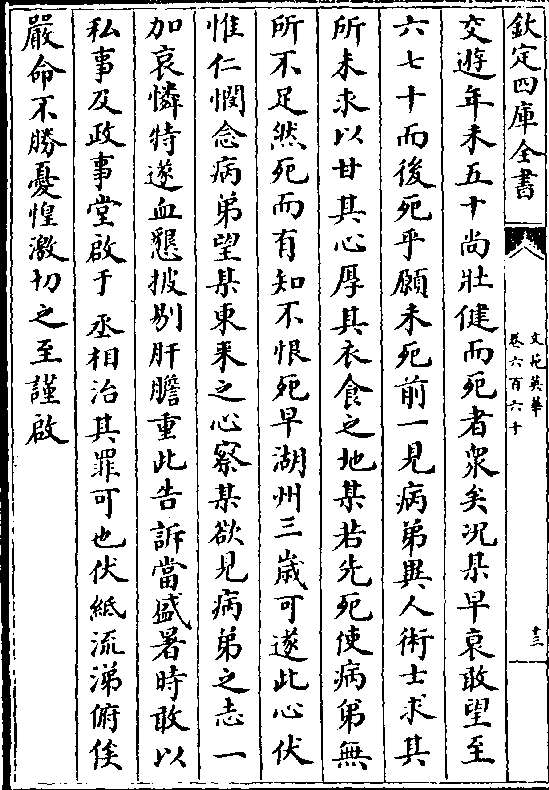 欽定四庫全書
文苑英華
卷六百六十
十三
交遊年未五十尚壯健而死者衆矣况某早衰敢望至
六七十而後死乎願未死前一見病弟與人術士求其
所未求以甘其心厚其衣食之地某若先死使病弟無
所不足然死而有知不恨死早湖州三歲可遂此心伏
惟仁憫念病弟望某東来之心察某欲見病弟之志一
加哀憐特遂血懇披剔肝膽重此告訴當盛暑時敢以
私事及政事堂啟于丞相治其罪可也伏紙流涕俯俟
嚴命不勝憂惶激切之至謹啟